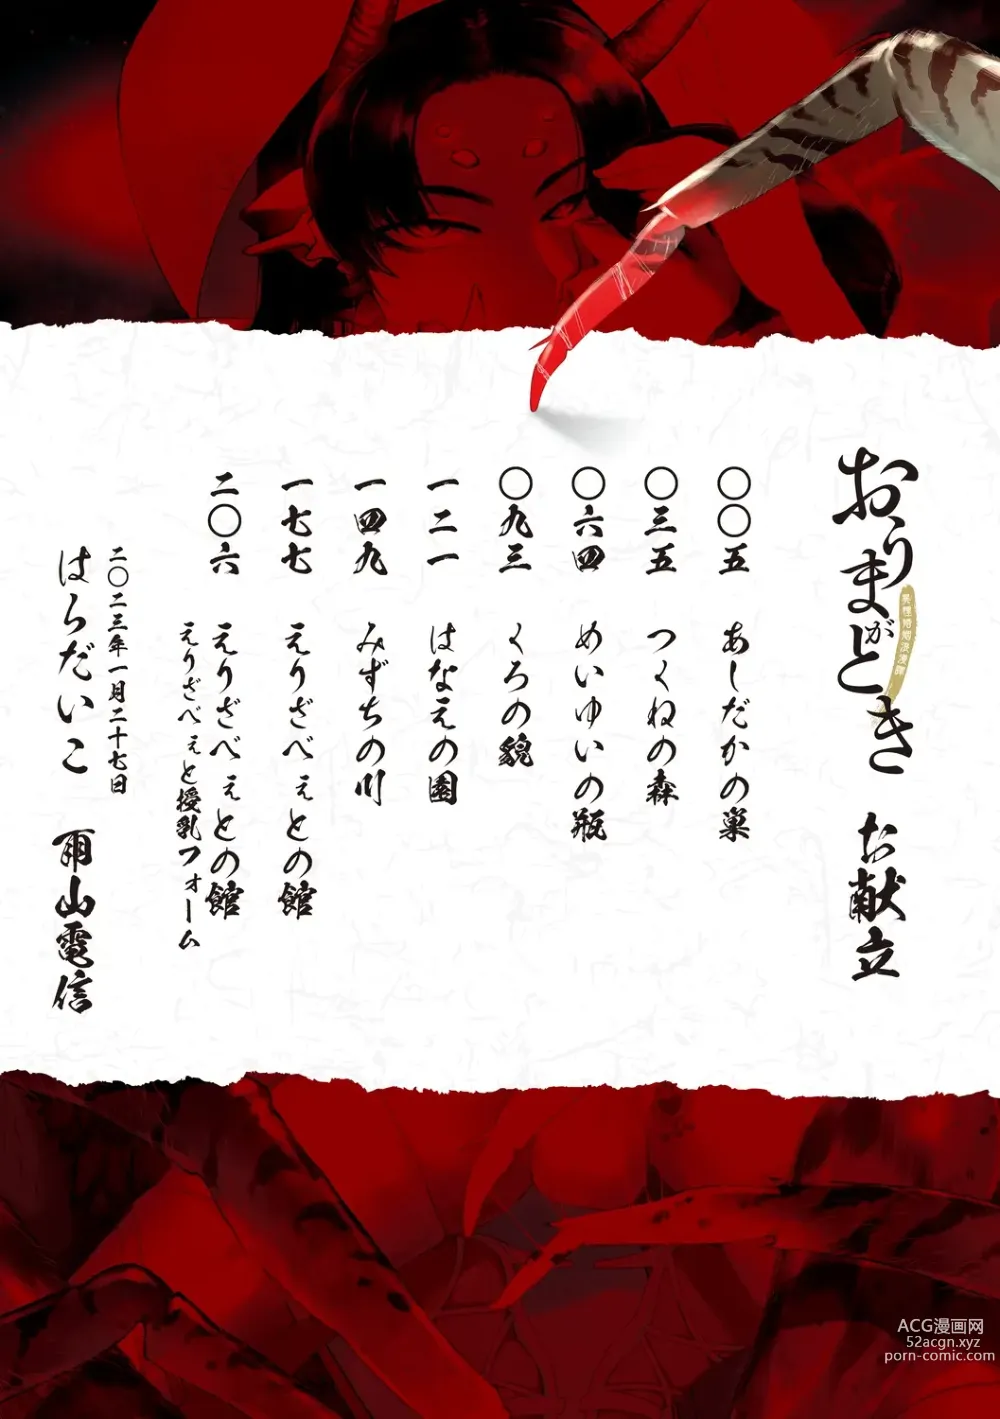 おりまがとき
異種婚姻浪漫譚
お献立
〇〇五 あしだかの巣
〇三五 つくねの森
〇六四 めいゆいの瓶
〇九三 くろの貌
一二一 はなえの園
一四九 みずちの川
一七七 えりざべぇとの館
二〇六 えりざべぇとの館
えりざべぇと授乳フォーム
二〇二三年一月二十七日
はらだいこ 雨山電信
ACG漫画网
52acgn.xyz
porn-comic.com